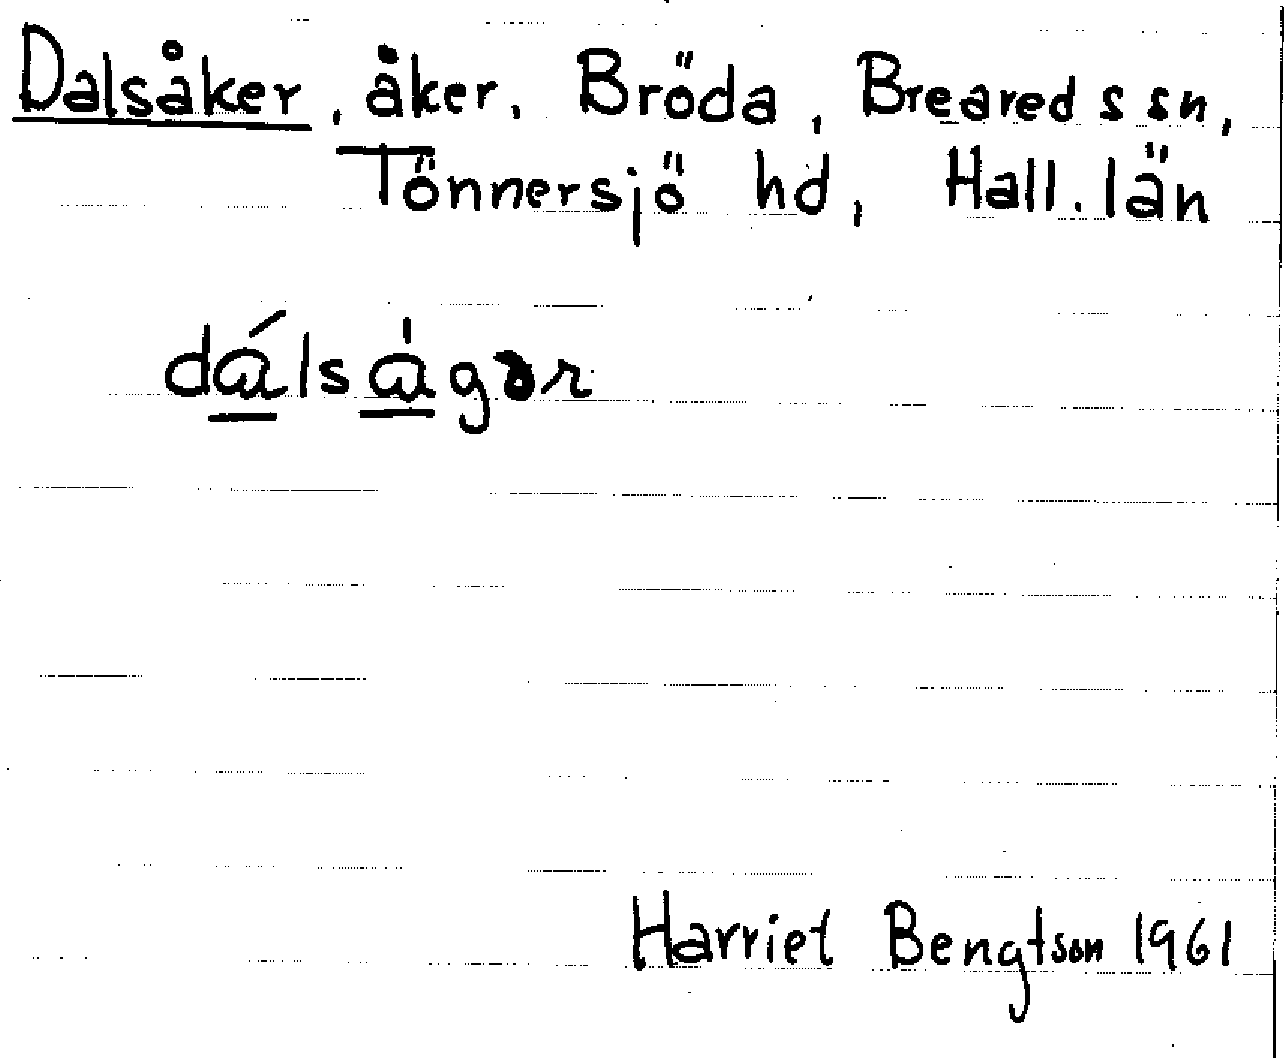 Dalsåker, åker, Bröda, Breareds sn,
Tönnersjö hd, Hall. län
dálsågər
Harriet Bengtson 1961